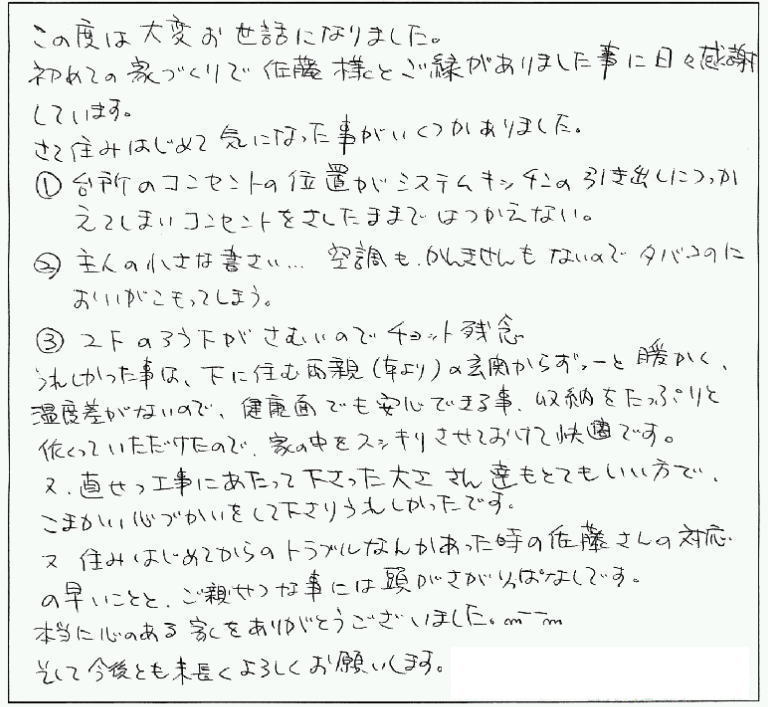 この度は大変お世話になりました。
初めての家づくりで佐藤様とご縁がありました事に日々感謝
しています。
さて住みはじめて気になった事がいくつかありました。
① 台所のコンセントの位置がシステムキッチンの引き出しにつっか
えてしまいコンセントをさしたままではつかえない。
② 主人の小さな書さい… 空調も、かんきせんもないのでタバコのに
おいがこもってしまう。
③ 2Fのろう下がさむいのでチョット残念
うれしかった事は、下に住む両親(年より)の玄関からずーっと暖かく、
温度差がないので、健康面でも安心できる事、収納をたっぷりと
作っていただけたので、家の中をスッキリさせておけて快適です。
又、直せつ工事にあたって下さった大工さん達もとてもいい方で、
こまかい心づかいをして下さりうれしかったです。
又 住みはじめてからのトラブルなんかあった時の佐藤さんの対応
の早いことと、ご親せつな事には頭がさがりっぱなしです。
本当に心のある家をありがとうございました。m--m
そして今後とも末長くよろしくお願いします。